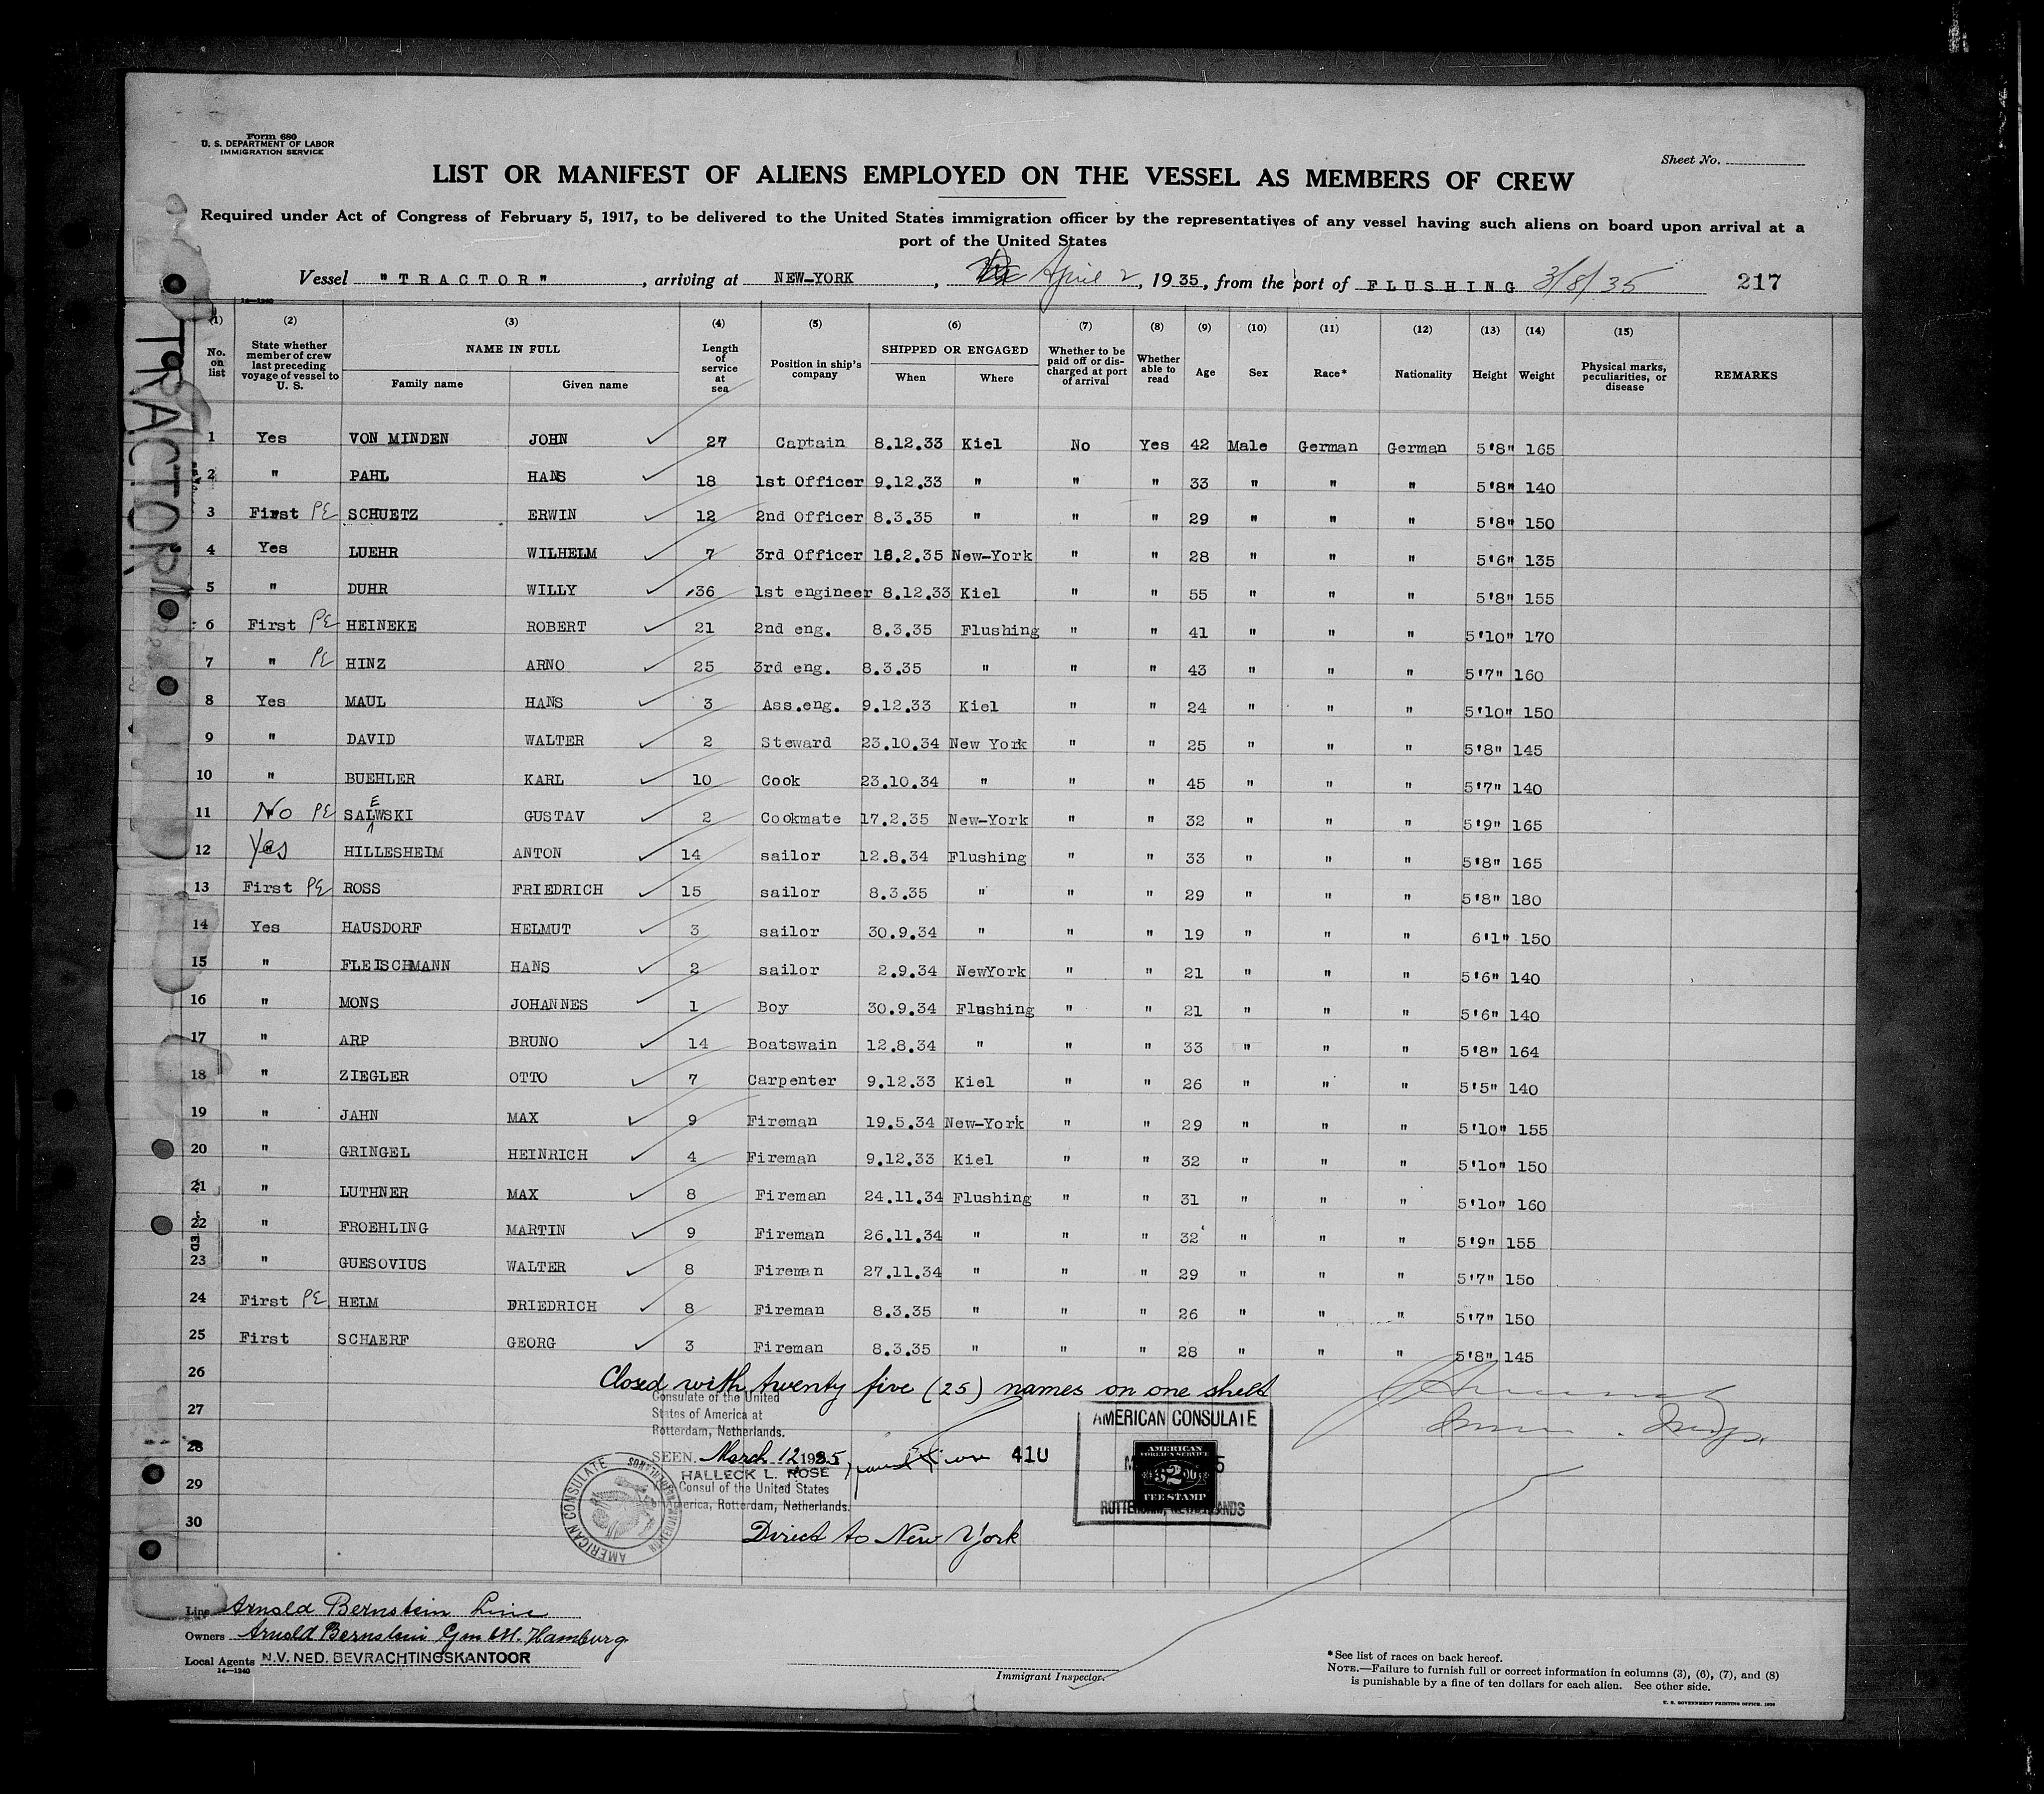 Form 680
U. S. DEPARTMENT OF LABOR
IMMIGRATION SERVICE
Sheet No.
LIST OR MANIFEST OF ALIENS EMPLOYED ON THE VESSEL AS MEMBERS OF CREW
Required under Act of Congress of February 5, 1917, to be delivered to the United States immigration officer by the representatives of any vessel having such aliens on board upon arrival at a
port of the United States
Vessel "TRACTOR", arriving at NEW-YORK, April 2, 1935, from the port of FLUSHING 3/8/35 217
14-1240
TRACTOR
(1) (2) (3) (4) (5) (6) (7) (8) (9) (10) (11) (12) (13) (14) (15)
No. on list State whether member of crew last preceding voyage of vessel to U. S. NAME IN FULL Family name Given name Length of service at sea Position in ship's company SHIPPED OR ENGAGED When Where Whether to be paid off or discharged at port of arrival Whether able to read Age Sex Race* Nationality Height Weight Physical marks, peculiarities, or disease REMARKS
1 Yes VON MINDEN JOHN ✓ 27 Captain 8.12.33 Kiel No Yes 42 Male German German 5'8" 165
2 " PAHL HANS ✓ 18 1st Officer 9.12.33 " " " 33 " " " 5'8" 140
3 First PE SCHUETZ ERWIN ✓ 12 2nd Officer 8.3.35 " " " 29 " " " 5'8" 150
4 Yes LUEHR WILHELM ✓ 7 3rd Officer 18.2.35 New-York " " 28 " " " 5'6" 135
5 " DUHR WILLY ✓ 36 1st engineer 8.12.33 Kiel " " 55 " " " 5'8" 155
6 First PE HEINEKE ROBERT ✓ 21 2nd eng. 8.3.35 Flushing " " 41 " " " 5'10" 170
7 " PE HINZ ARNO ✓ 25 3rd eng. 8.3.35 " " " 43 " " " 5'7" 160
8 Yes MAUL HANS ✓ 3 Ass.eng. 9.12.33 Kiel " " 24 " " " 5'10" 150
9 " DAVID WALTER ✓ 2 Steward 23.10.34 New York " " 25 " " " 5'8" 145
10 " BUEHLER KARL ✓ 10 Cook 23.10.34 " " " 45 " " " 5'7" 140
11 No PE SALEWSKI GUSTAV ✓ 2 Cookmate 17.2.35 New-York " " 32 " " " 5'9" 165
12 Yes HILLESHEIM ANTON ✓ 14 sailor 12.8.34 Flushing " " 33 " " " 5'8" 165
13 First PE ROSS FRIEDRICH ✓ 15 sailor 8.3.35 " " " 29 " " " 5'8" 180
14 Yes HAUSDORF HELMUT ✓ 3 sailor 30.9.34 " " " 19 " " " 6'1" 150
15 " FLEISCHMANN HANS ✓ 2 sailor 2.9.34 NewYork " " 21 " " " 5'6" 140
16 " MONS JOHANNES ✓ 1 Boy 30.9.34 Flushing " " 21 " " " 5'6" 140
17 " ARP BRUNO ✓ 14 Boatswain 12.8.34 " " " 33 " " " 5'8" 164
18 " ZIEGLER OTTO ✓ 7 Carpenter 9.12.33 Kiel " " 26 " " " 5'5" 140
19 " JAHN MAX ✓ 9 Fireman 19.5.34 New-York " " 29 " " " 5'10" 155
20 " GRINGEL HEINRICH ✓ 4 Fireman 9.12.33 Kiel " " 32 " " " 5'10" 150
21 " LUTHNER MAX ✓ 8 Fireman 24.11.34 Flushing " " 31 " " " 5'10" 160
22 " FROEHLING MARTIN ✓ 9 Fireman 26.11.34 " " " 32 " " " 5'9" 155
23 " GUESOVIUS WALTER ✓ 8 Fireman 27.11.34 " " " 29 " " " 5'7" 150
24 First PE HELM FRIEDRICH ✓ 8 Fireman 8.3.35 " " " 26 " " " 5'7" 150
25 First SCHAERF GEORG ✓ 3 Fireman 8.3.35 " " " 28 " " " 5'8" 145
26 Closed with twenty five (25) names on one sheet
27
28
29
30
Consulate of the United
States of America at
Rotterdam, Netherlands.
SEEN. March 12 1935 410
HALLECK L. ROSE
Consul of the United States
of America, Rotterdam, Netherlands.
AMERICAN CONSULATE
AMERICAN CONSULATE
AMERICAN
FOREIGN SERVICE
$2.00
FEE STAMP
ROTTERDAM, NETHERLANDS
Direct to New York
Line Arnold Bernstein Line
Owners Arnold Bernstein G.m.b.H. Hamburg
Local Agents N.V. NED. BEVRACHTINGSKANTOOR
14-1240
Immigrant Inspector.
*See list of races on back hereof.
NOTE.—Failure to furnish full or correct information in columns (3), (6), (7), and (8)
is punishable by a fine of ten dollars for each alien. See other side.
U. S. GOVERNMENT PRINTING OFFICE